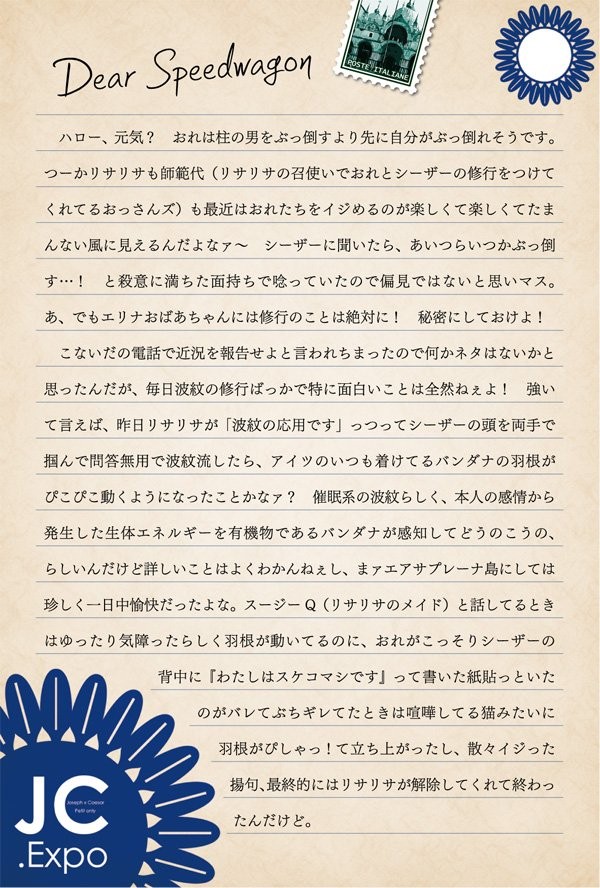 Dear Speedwagon
POSTE ITALIANE
　ハロー、元気？　おれは柱の男をぶっ倒すより先に自分がぶっ倒れそうです。
つーかリサリサも師範代（リサリサの召使いでおれとシーザーの修行をつけて
くれてるおっさんズ）も最近はおれたちをイジめるのが楽しくて楽しくてたま
んない風に見えるんだよなァ〜　シーザーに聞いたら、あいつらいつかぶっ倒
す…！　と殺意に満ちた面持ちで唸っていたので偏見ではないと思いマス。
あ、でもエリナおばあちゃんには修行のことは絶対に！　秘密にしておけよ！
　こないだの電話で近況を報告せよと言われちまったので何かネタはないかと
思ったんだが、毎日波紋の修行ばっかで特に面白いことは全然ねぇよ！　強い
て言えば、昨日リサリサが「波紋の応用です」っつってシーザーの頭を両手で
掴んで問答無用で波紋流したら、アイツのいつも着けてるバンダナの羽根が
ぴこぴこ動くようになったことかなァ？　催眠系の波紋らしく、本人の感情から
発生した生体エネルギーを有機物であるバンダナが感知してどうのこうの、
らしいんだけど詳しいことはよくわかんねぇし、まァエアサプレーナ島にしては
珍しく一日中愉快だったよな。スージーQ（リサリサのメイド）と話してるとき
はゆったり気障ったらしく羽根が動いてるのに、おれがこっそりシーザーの
背中に『わたしはスケコマシです』って書いた紙貼っといた
のがバレてぶちギレてたときは喧嘩してる猫みたいに
羽根がぴしゃっ！て立ち上がったし、散々イジった
揚句、最終的にはリサリサが解除してくれて終わっ
たんだけど。
JC
Joseph x Caesar
Petit only
.Expo